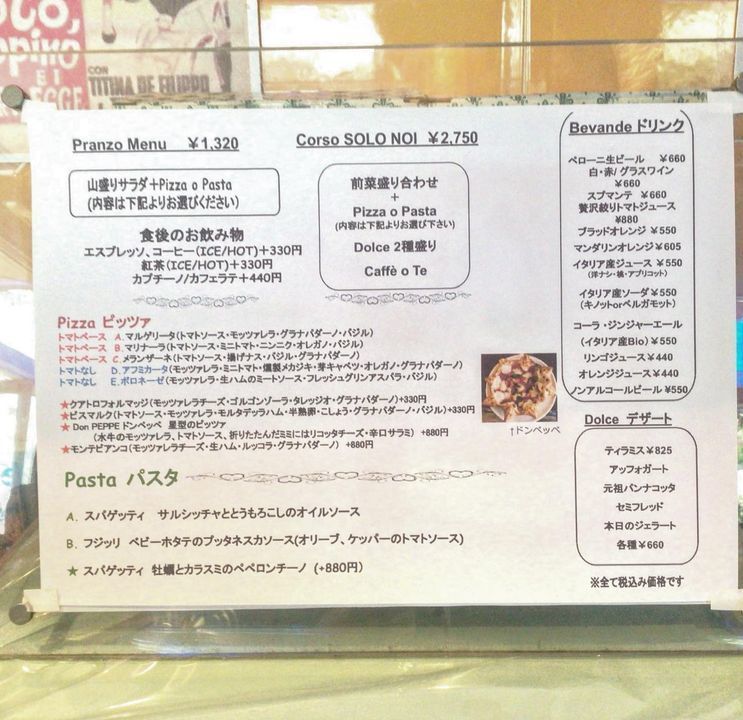 CON
TITINA DE FILIPPO
E I
Pranzo Menu ￥1,320
山盛りサラダ＋Pizza o Pasta
(内容は下記よりお選びください)
食後のお飲み物
エスプレッソ、コーヒー(ICE/HOT)＋330円
紅茶(ICE/HOT)＋330円
カプチーノ/カフェラテ＋440円
Corso SOLO NOI ￥2,750
前菜盛り合わせ
+
Pizza o Pasta
(内容は下記よりお選び下さい)
Dolce 2種盛り
Caffè o Te
Bevande ドリンク
ペローニ生ビール ￥660
白・赤/ グラスワイン
￥660
スプマンテ ￥660
贅沢絞りトマトジュース
¥880
ブラッドオレンジ ￥550
マンダリンオレンジ￥605
イタリア産ジュース ￥550
(洋ナシ・桃・アプリコット)
イタリア産ソーダ￥550
(キノットorベルガモット)
コーラ・ジンジャーエール
(イタリア産Bio) ￥550
リンゴジュース￥440
オレンジジュース￥440
ノンアルコールビール ¥550
Pizza ピッツァ
トマトベース A.マルゲリータ(トマトソース・モッツァレラ・グラナパダーノ・バジル)
トマトベース B.マリナーラ(トマトソース・ミニトマト・ニンニク・オレガノ・バジル)
トマトベース C.メランザーネ(トマトソース・揚げナス・バジル・グラナパダーノ)
トマトなし D.アフミカータ(モッツァレラ・ミニトマト・燻製メカジキ・芽キャベツ・オレガノ・グラナパダーノ)
トマトなし E.ボロネーゼ(モッツァレラ・生ハムのミートソース・フレッシュグリンアスパラ・バジル)
★クアトロフォルマッジ(モッツァレラチーズ・ゴルゴンゾーラ・タレッジオ・グラナパダーノ)+330円
★ビスマルク(トマトソース・モッツァレラ・モルタデッラハム・半熟卵・こしょう・グラナパダーノ・バジル)+330円
★ Don PEPPE ドンペッペ 星型のピッツァ
(水牛のモッツァレラ、トマトソース、折りたたんだミミにはリコッタチーズ・辛口サラミ) +880円
★モンテビアンコ(モッツァレラチーズ・生ハム・ルッコラ・グラナパダーノ) +880円
↑ドンペッペ
Pasta パスタ
A. スパゲッティ サルシッチャととうもろこしのオイルソース
B. フジッリ ベビーホタテのプッタネスカソース(オリーブ、ケッパーのトマトソース)
★ スパゲッティ 牡蠣とカラスミのペペロンチーノ (+880円)
Dolce デザート
ティラミス￥825
アッフォガート
元祖パンナコッタ
セミフレッド
本日のジェラート
各種￥660
※全て税込み価格です